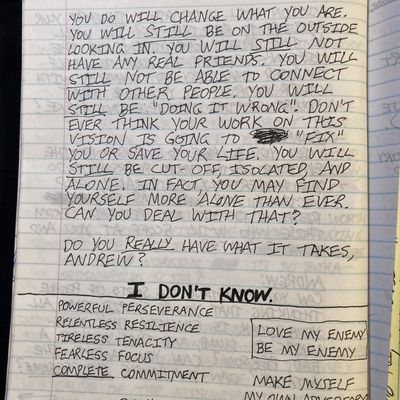 YOU DO WILL CHANGE WHAT YOU ARE.
YOU WILL STILL BE ON THE OUTSIDE
LOOKING IN. YOU WILL STILL NOT
HAVE ANY REAL FRIENDS. YOU WILL
STILL NOT BE ABLE TO CONNECT
WITH OTHER PEOPLE. YOU WILL
STILL BE "DOING IT WRONG". DON'T
EVER THINK YOUR WORK ON THIS
VISION IS GOING TO "FIX"
YOU OR SAVE YOUR LIFE. YOU WILL
STILL BE CUT-OFF, ISOLATED, AND
ALONE. IN FACT, YOU MAY FIND
YOURSELF MORE ALONE THAN EVER.
CAN YOU DEAL WITH THAT?
DO YOU REALLY HAVE WHAT IT TAKES,
ANDREW?
I DON'T KNOW.
POWERFUL PERSEVERANCE
RELENTLESS RESILIENCE
TIRELESS TENACITY
FEARLESS FOCUS
COMPLETE COMMITMENT
LOVE MY ENEMY
BE MY ENEMY
MAKE MYSELF
MY OWN ADVERSARY